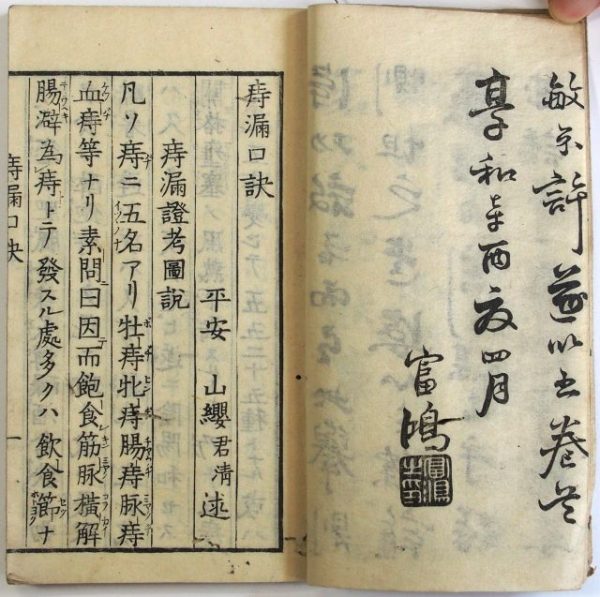 許遂以
享和辛酉夏四月
富鴻
痔漏口訣
平安 山纓君淸述
痔漏證考圖說
凡ソ痔ニ五名アリ牡痔牝痔腸痔脉痔
血痔等ナリ素問曰因而飽食筋脉橫解
腸澼為痔トテ發スル處多クハ飲食節ナ
痔漏口訣 一